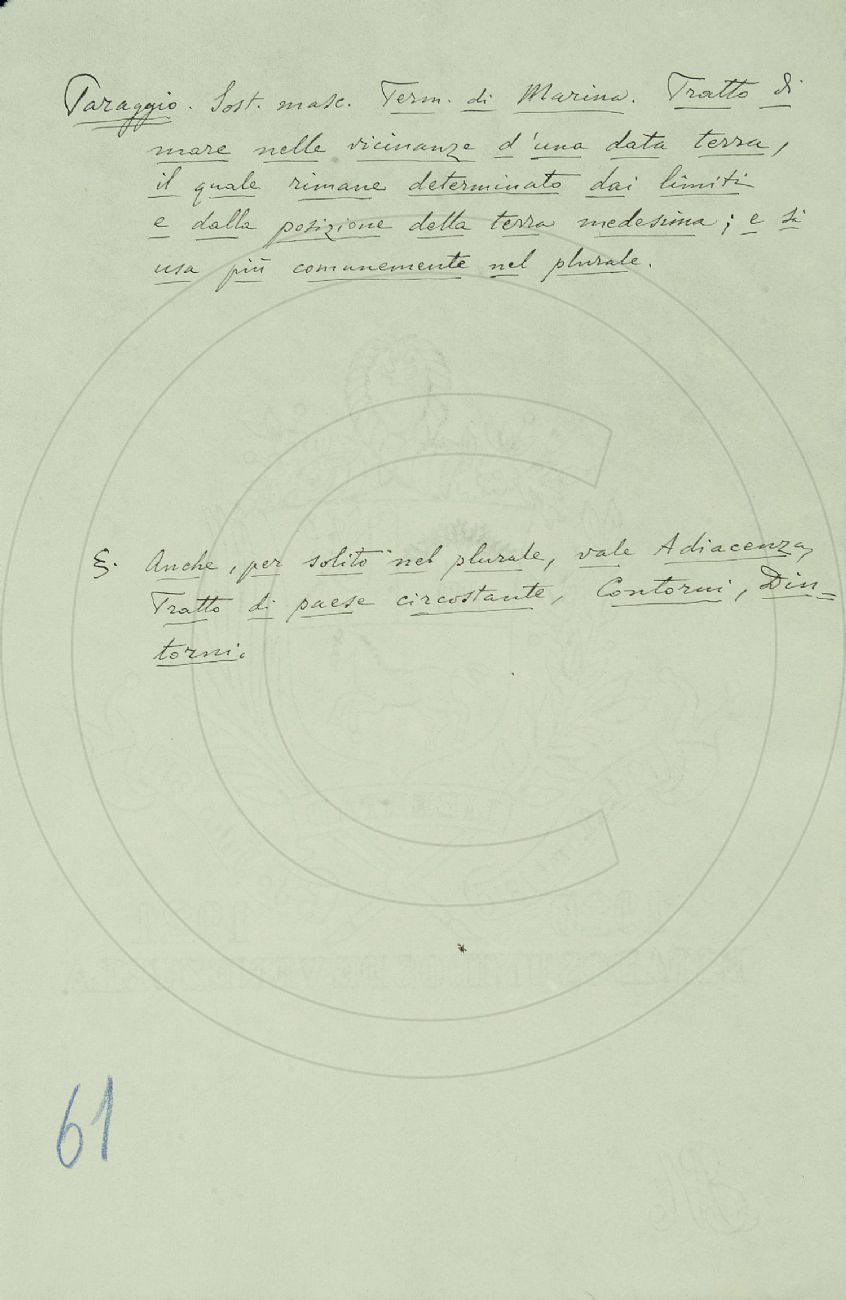 Paraggio. Sost. masc. Term. di Marina. Tratto di
mare nelle vicinanze d'una data terra,
il quale rimane determinato dai limiti
e dalla posizione della terra medesima; e si
usa più comunemente nel plurale.
§. Anche, per solito nel plurale, vale Adiacenza,
Tratto di paese circostante, Contorni, Din=
torni.
61